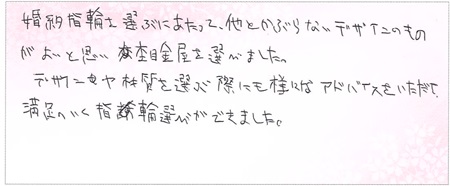 婚約指輪を選ぶにあたって、他とかぶらないデザインのもの
がよいと思い杢目金屋を選びました。
デザインや材質を選ぶ際にも様々なアドバイスをいただき、
満足のいく指輪選びができました。